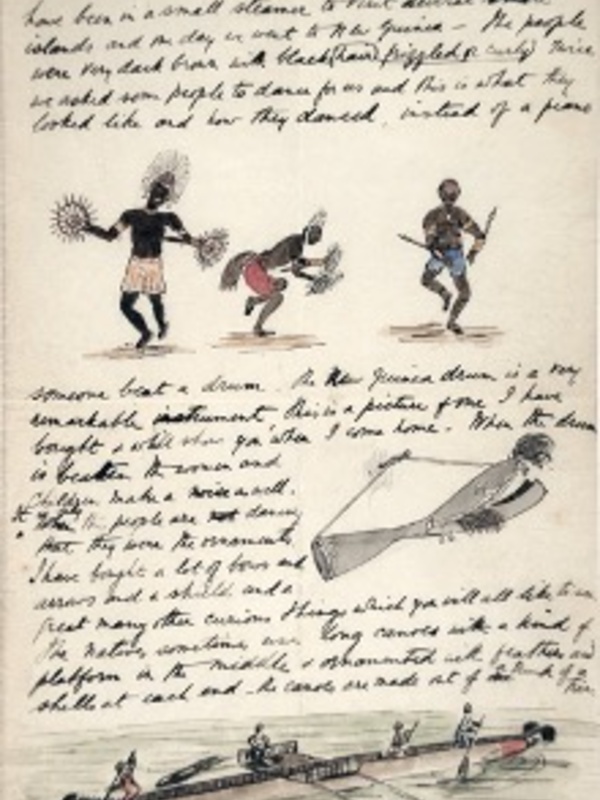 have been in a small steamer to visit several
islands and one day we went to New Guinea – The people
were very dark brown with black (hair) frizzled or curly) Twice
we asked some people to dance for us and this is what they
looked like and how they danced, instead of a piano
someone beat a drum. The New Guinea drum is a very
remarkable instrument this is a picture of one I have
bought & will show you when I come home. When the drum
is beaten the women and
children make a noise as well.
the people are not dancing
that they wear the ornaments.
I have bought a lot of bows and
arrows and a shield and a
great many other curious things which you will all like to see
The natives sometimes use long canoes with a kind of
platform in the middle & ornamented with feathers and
shells at each end – the canoes are made out of the trunk of a
tree.